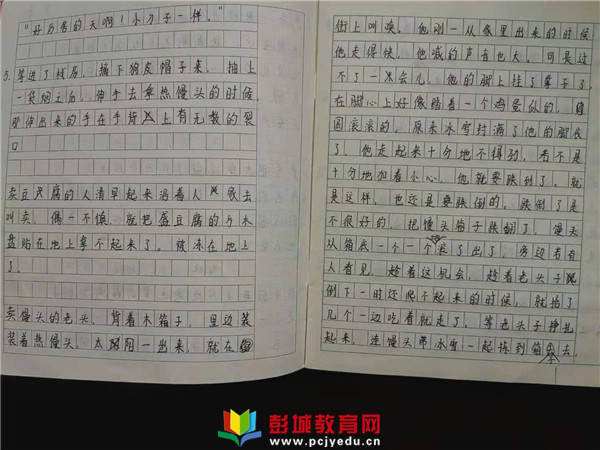 “好厉害的天啊！小刀子一样。”
5. 等进了栈房，摘下狗皮帽子来，抽上
一袋烟之后，伸手去拿热馒头的时候，
那伸出来的手在手背上有无数的裂
口
卖豆腐的人清早起来沿着人家去
叫卖，偶一不慎，就把盛豆腐的方木
盘贴在地上拿不起来了。被冻在地上
了。
卖馒头的老头，背着木箱子，里边装
装着热馒头，太阳一出来，就在
街上叫唤。他刚一从家里出来的时候
他走得快，他喊的声音也大。可是过
不了一会儿，他的脚上挂了掌子了，
在脚心上好像踏着一个鸡蛋似的，
圆滚滚的。原来冰雪封满了他的脚底
了。他走起来十分地不得劲，若不是
十分地加着小心，他就要跌倒了。就
是这样，也还是要跌倒的。跌倒了是
不很好的，把馒头箱子跌翻了，馒头
从箱底一个一个滚了出了。旁边若有
人看见，趁着这机会，趁着老头子
倒下一时还爬不起来的时候，就拾了
几个一边吃着就走了。等老头子挣扎
起来，连馒头带冰雪一起拣到箱去，
彭城教育网
www.pcjyedu.cn